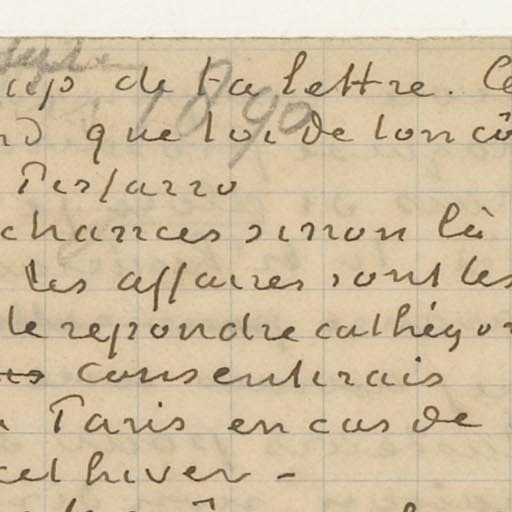 de ta lettre. Ce
1890
que toi de ton cô
Pissarro
chances sinon là
les affaires sont les
de repondre cathégor
consentirais
Paris en cas de
cet hiver -